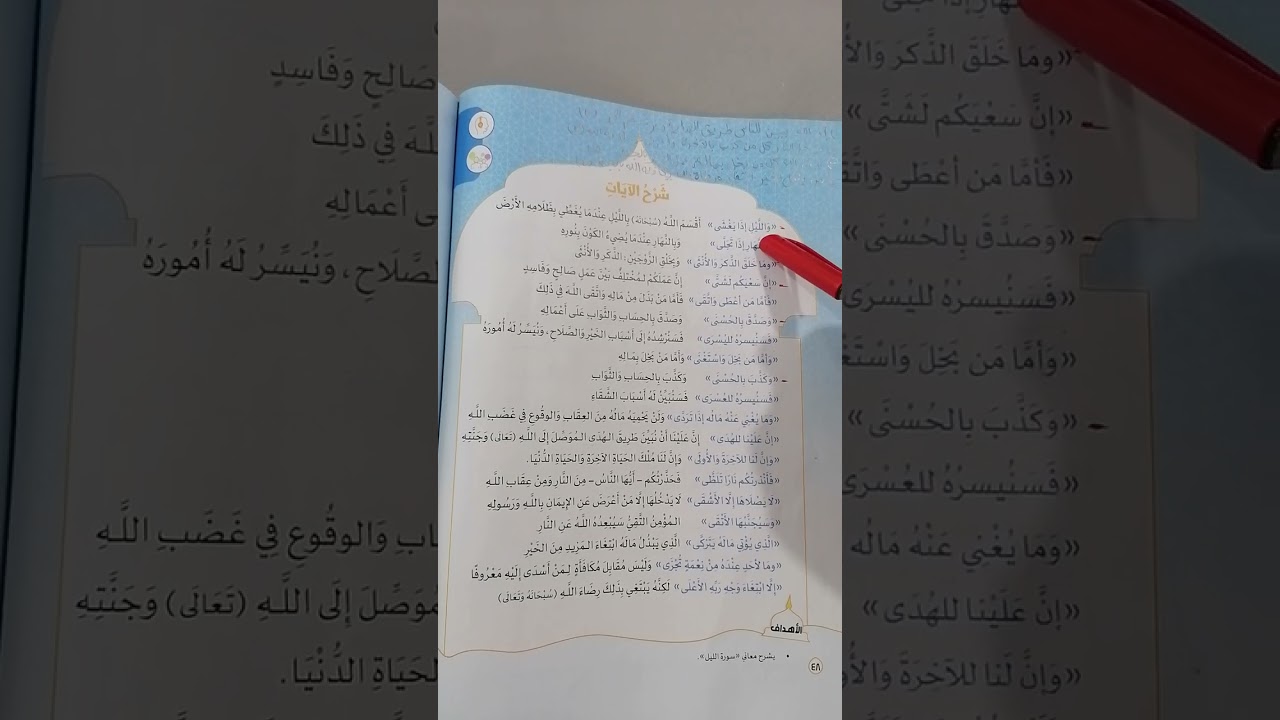 شَرْحُ الآيَاتِ
«وَاللَّيْلِ إِذَا يَغْشَى» أَقْسَمَ اللهُ (سُبْحَانَهُ) بِاللَّيْلِ عِنْدَمَا يُغَطِّي بِظَلَامِهِ الأَرْضَ
إِذَا تَجَلَّى» وَبِالنَّهَارِ عِنْدَمَا يُضِيءُ الكَوْنَ بِنُورِهِ
«وَمَا خَلَقَ الذَّكَرَ وَالأُنْثَى» وَبِخَلْقِ الزَّوْجَيْنِ: الذَّكَرِ وَالأُنْثَى
«إِنَّ سَعْيَكُم لَشَتَّى» إِنَّ عَمَلَكُمْ لَمُخْتَلِفٌ بَيْنَ عَمَلٍ صَالِحٍ وَفَاسِدٍ
«فَأَمَّا مَن أَعْطَى وَاتَّقَى» فَأَمَّا مَنْ بَذَلَ مِنْ مَالِهِ وَاتَّقَى اللَّهَ فِي ذَلِكَ
«وَصَدَّقَ بِالحُسْنَى» وَصَدَّقَ بِالحِسَابِ وَالثَّوَابِ عَلَى أَعْمَالِهِ
«فَسَنُيسِرُهُ للْيُسْرَى» فَسَنُرْشِدُهُ إِلَى أَسْبَابِ الخَيْرِ وَالصَّلَاحِ، وَنُيَسِّرُ لَهُ أُمُورَهُ
«وَأَمَّا مَن بَخِلَ وَاسْتَغْنَى» وَأَمَّا مَنْ بَخِلَ بِمَالِهِ
«وَكَذَّبَ بِالحُسْنَى» وَكَذَّبَ بِالحِسَابِ وَالثَّوَابِ
«فَسَنُيسِرُهُ للْعُسْرَى» فَسَنُبَيِّنُ لَهُ أَسْبَابَ الشَّقَاءِ
«وَمَا يُغْنِي عَنْهُ مَالُه إِذَا تَرَدَّى» وَلَنْ يَحْمِيَهُ مَالُهُ مِنَ العِقَابِ وَالوقُوعِ فِي غَضَبِ اللَّهِ
«إِنَّ عَلَيْنَا للهُدَى» إِنَّ عَلَيْنَا أَنْ نُبَيِّنَ طَرِيقَ الهُدَى المُوَصِّلَ إِلَى اللَّهِ (تَعَالَى) وَجَنَّتِهِ
«وَإِنَّ لَنَا للآخِرَةَ وَالأُولَى» وَإِنَّ لَنَا مُلْكَ الحَيَاةِ الآخِرَةِ وَالحَيَاةِ الدُّنْيَا.
«فَأَنْذَرْتُكُم نَارًا تَلَظَّى» فَحَذَّرْتُكُم - أَيُّهَا النَّاسُ - مِنَ النَّارِ وَمِنْ عِقَابِ اللَّهِ
«لا يصْلَاهَا إِلَّا الأَشْقَى» لا يَدْخُلُهَا إِلَّا مَنْ أَعْرَضَ عَنِ الإِيمَانِ بِاللَّهِ وَرَسُولِهِ
«وَسَيُجَنَّبُهَا الأَتْقَى» المُؤْمِنُ التَّقِيُّ سَيُبْعِدُهُ اللَّهُ عَنِ النَّارِ
«الَّذِي يُؤْتِي مَالَهُ يَتَزَكَّى» الَّذِي يَبْذُلُ مَالَهُ ابْتِغَاءَ المَزِيدِ مِنَ الخَيْرِ
«وَما لأحدٍ عِنْدَهُ مِنْ نِعْمَةٍ تُجْزَى» وَلَيْسَ مُقَابِلَ مُكَافَأَةٍ لِمَنْ أَسْدَى إِلَيْهِ مَعْرُوفًا
«إِلَّا ابْتِغَاءَ وَجْهِ رَبِّهِ الأَعْلَى» لَكِنَّهُ يَبْتَغِي بِذَلِكَ رِضَاءَ اللَّهِ (سُبْحَانَهُ وَتَعَالَى)
الأهداف
• يشرح معاني «سورة الليل».
٤٨